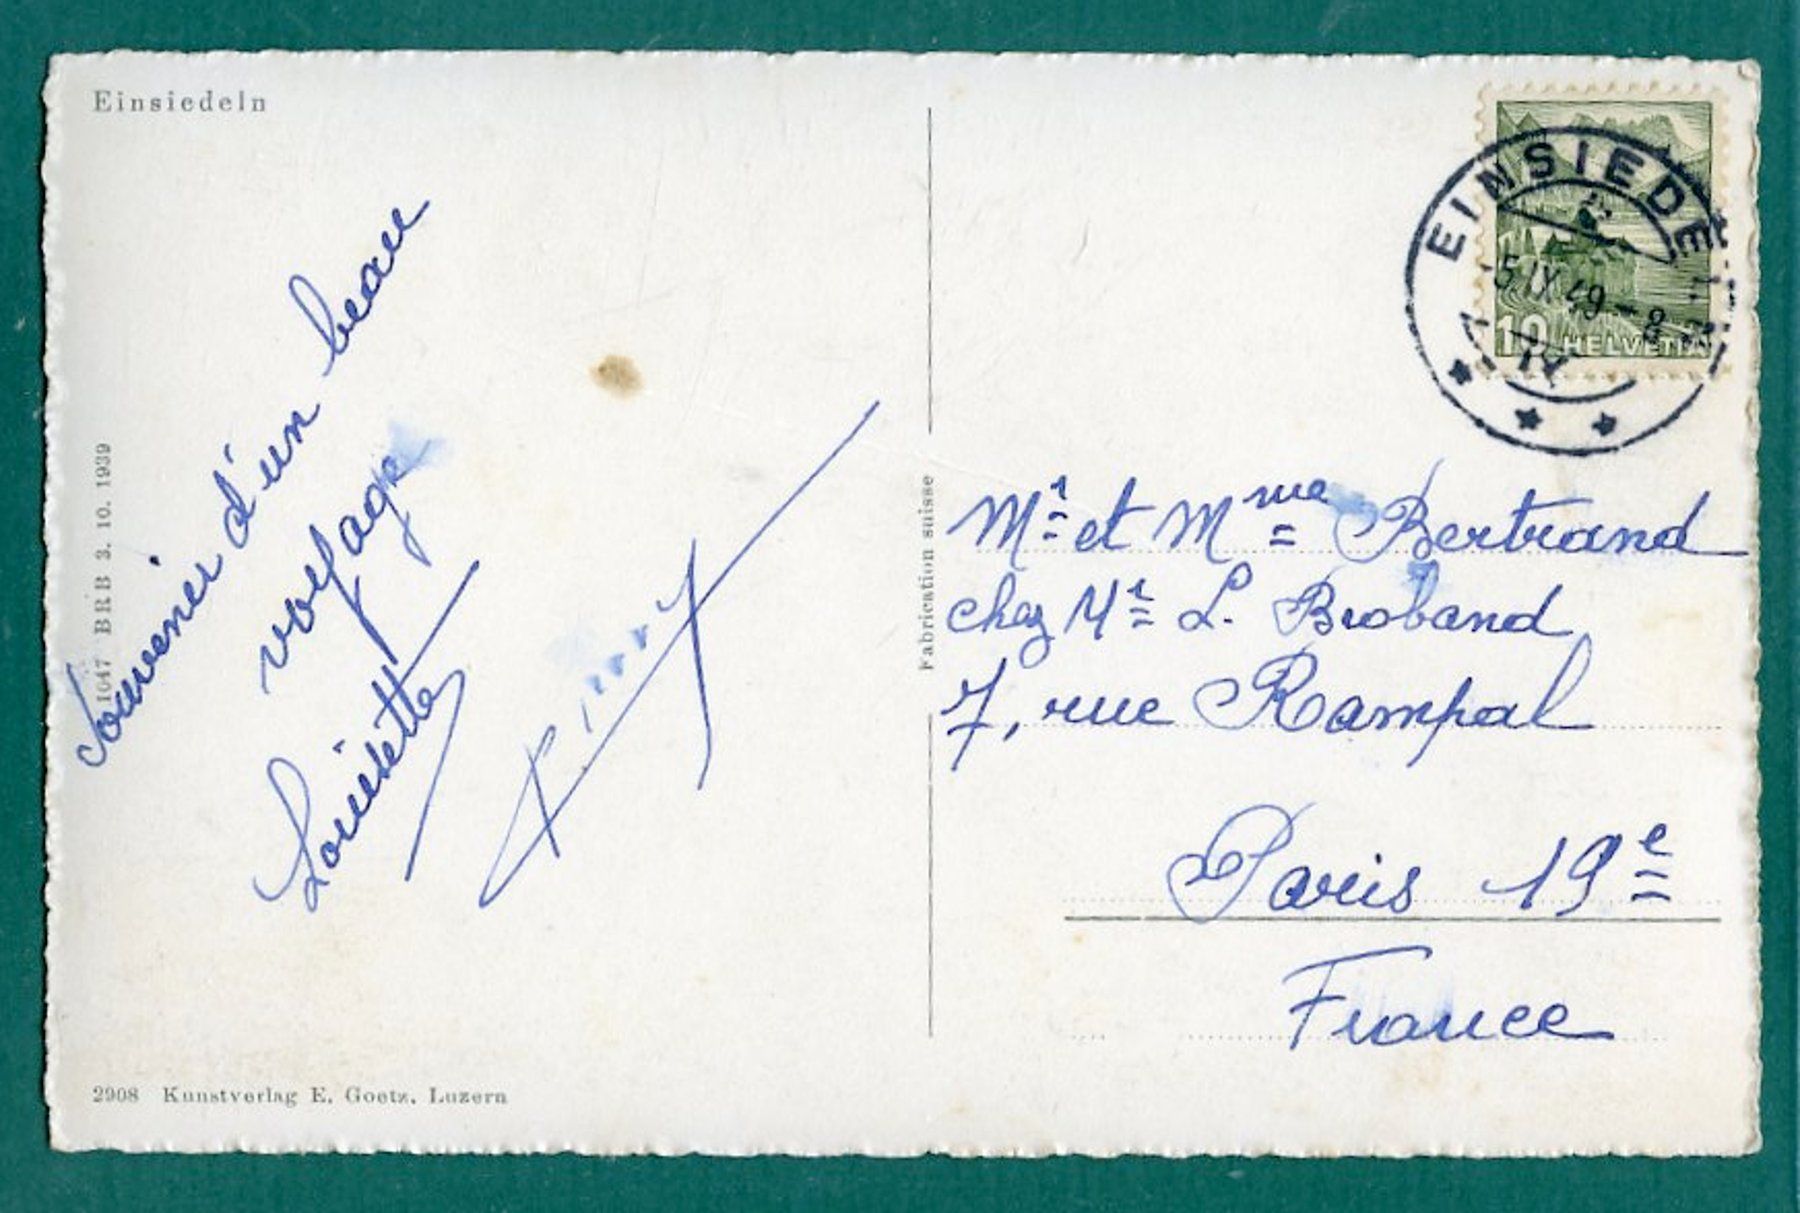 Einsiedeln
1647 BRB 3. 10. 1939
Souvenir d'un beau
voyage
Louisette
Pierre
2908 Kunstverlag E. Goetz, Luzern
Fabrication suisse
EINSIEDELN
5.IX.49-8
10 HELVETIA
Mr et Mme Bertrand
chez Mr L. Broband
7, rue Rampal
Paris 19e
France